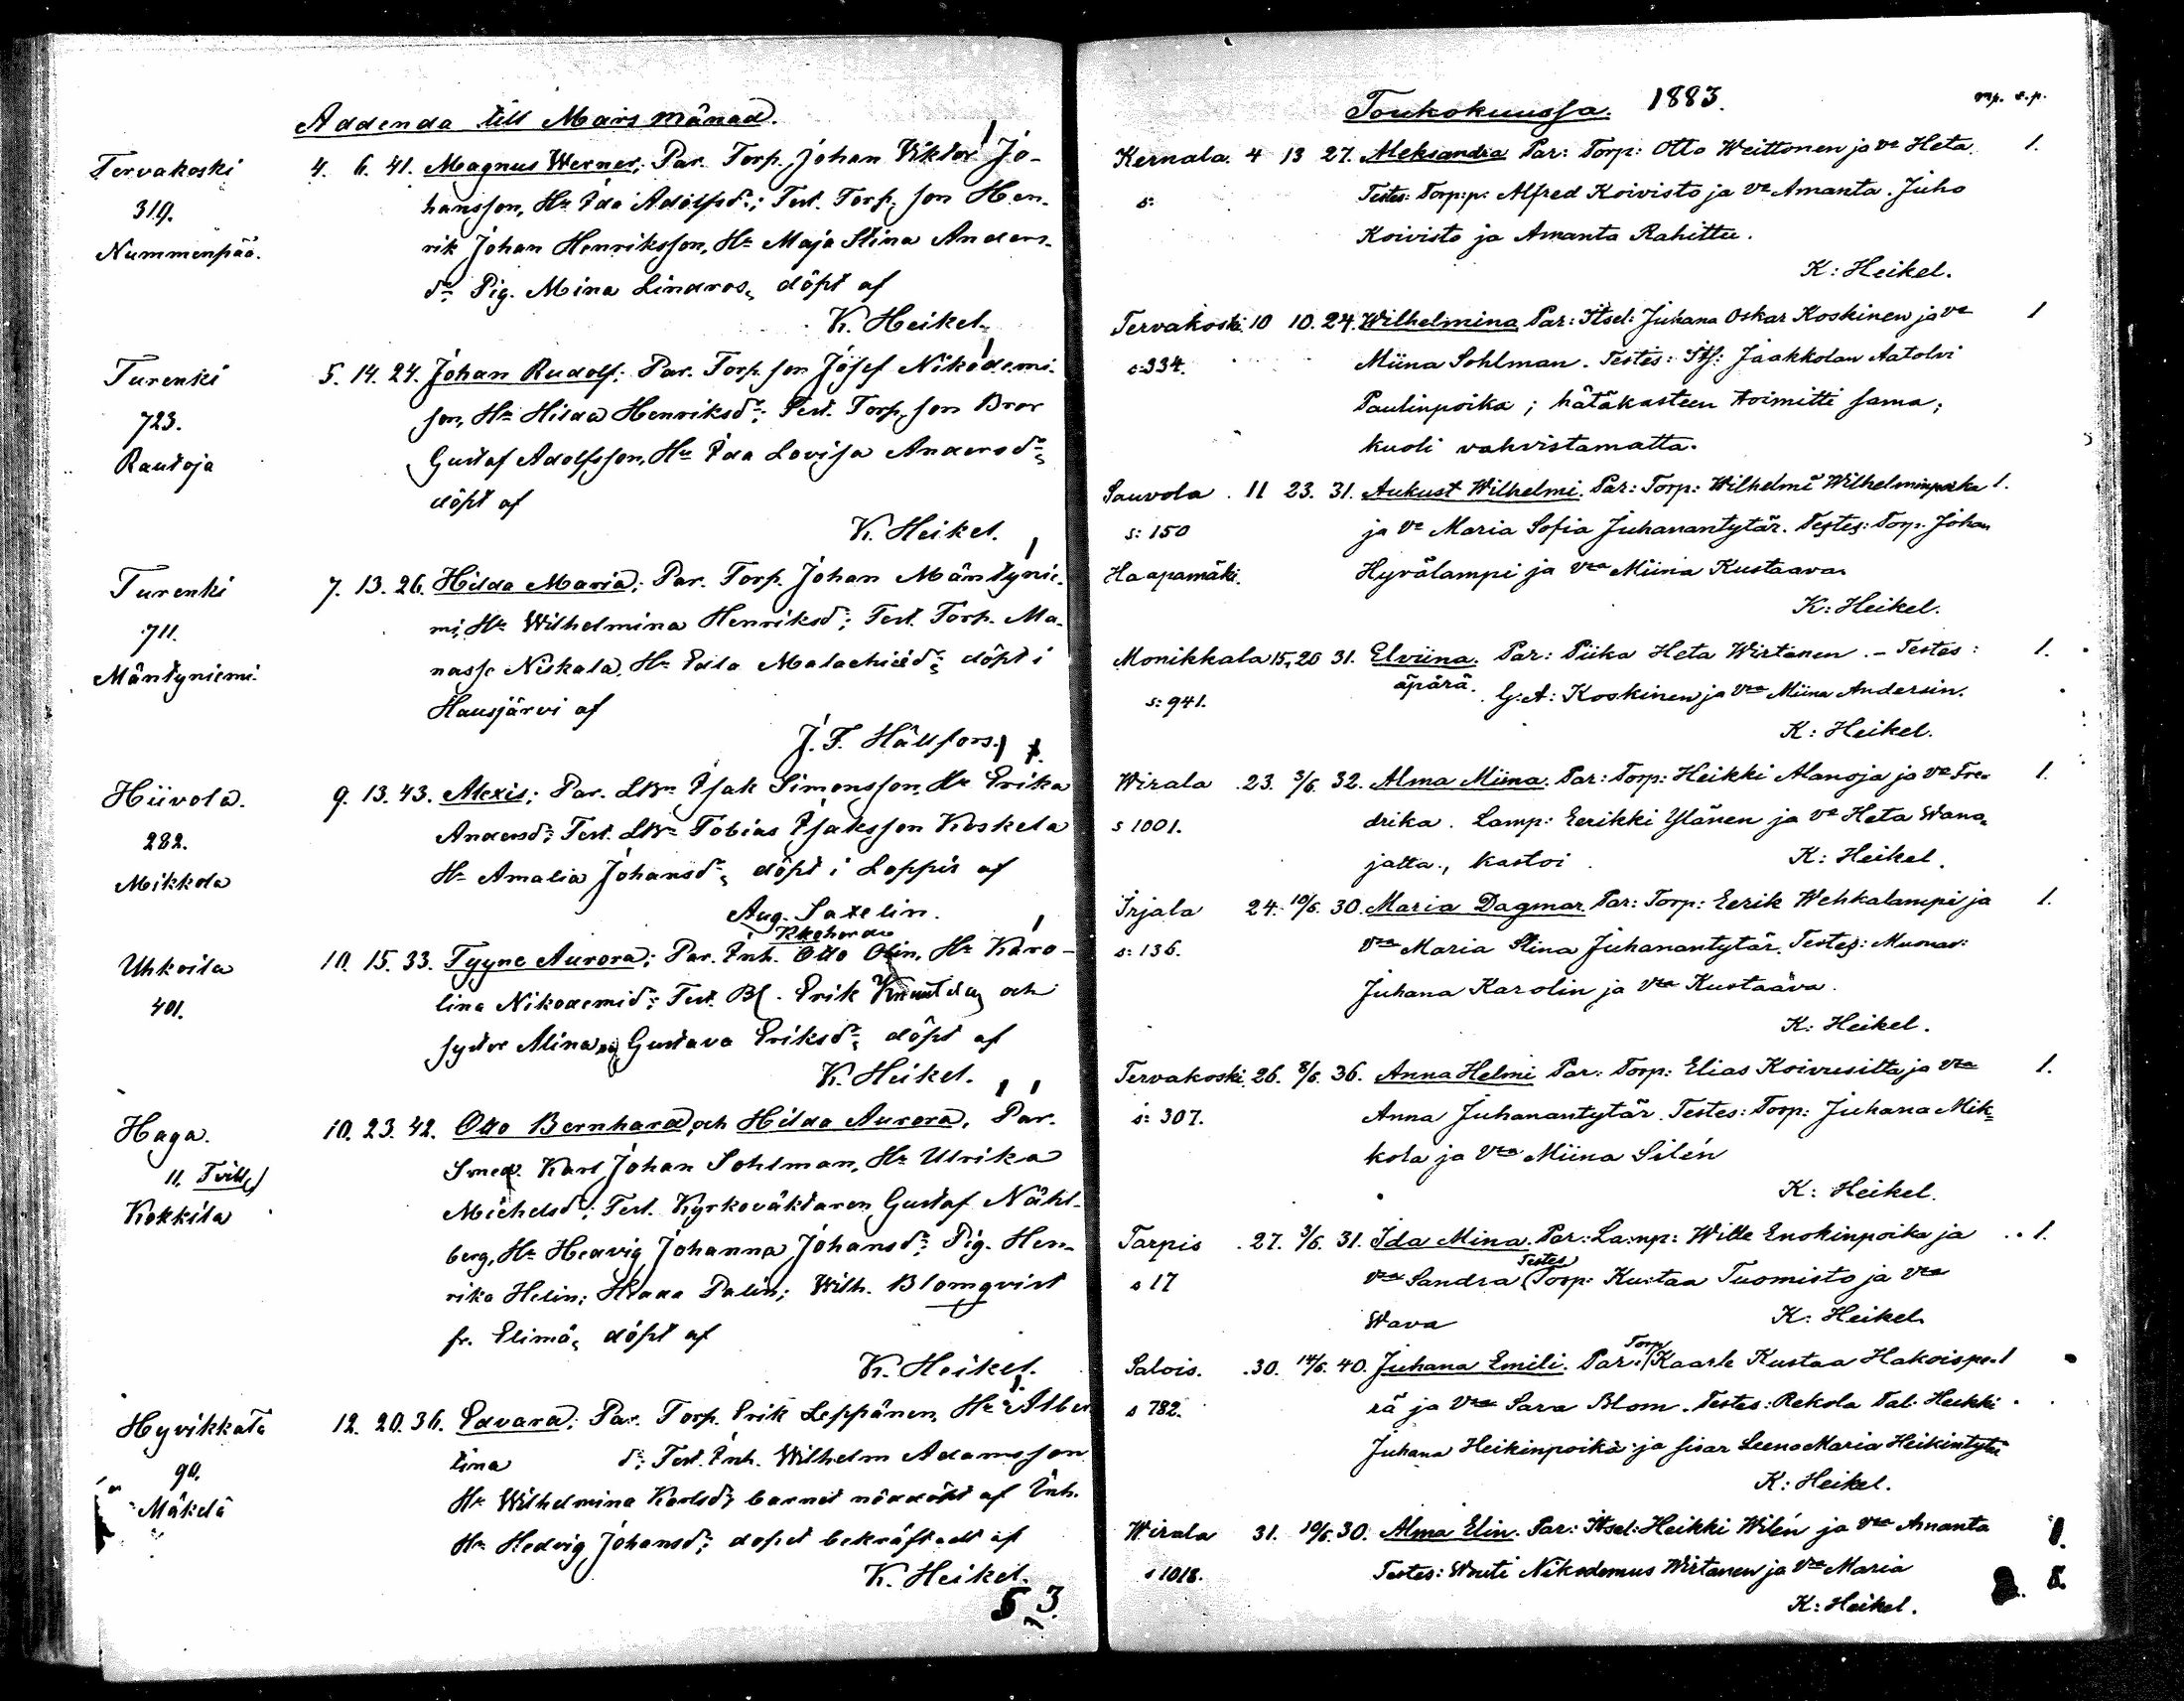 Addenda till Mars månad.
Tervakoski 4. 6. 41. Magnus Werner; Par. Torp. Johan Viktor Jo-
319. hansson, Hu Ida Adolfsdr; Test. Torp. son Hen-
Nummenpää. rik Johan Henriksson, Hu Maja Stina Anders-
dr, Pig. Mina Lindros, döpt af
K. Heikel.
Turenki 5. 14. 24. Johan Rudolf; Par. Torp. son Josef Nikodemi-
723. son, Hu Hilda Henriksdr; Test. Torp. son Bror
Rautoja Gustaf Adolfsson, Hu Ida Lovisa Andersdr,
döpt af
K. Heikel.
Turenki 7. 13. 26. Hilda Maria; Par. Torp. Johan Mäntynie-
711. mi, Hu Wilhelmina Henriksd; Test. Torp. Ma-
Mäntyniemi. nasse Niskala, Hu Edla Malachiædr, döpt i
Hausjärvi af
J. F. Hällfors.
Hiivola. 9. 13. 43. Alexis; Par. Isak Simonsson, Hu Erika
282. Andersdr; Test. Tobias Isaksson Koskela
Mikkola Hu Amalia Johansdr, döpt i Loppis af
Aug. Saxelin.
Uhkoila 10. 15. 33. Tyyne Aurora; Par. Inh. Otto Olin, Hu Karo-
401. lina Nikodemidr; Test. Erik och
syster Alina Gustava Eriksdr, döpt af
K. Heikel.
Haga. 10. 23. 42. Otto Bernhard och Hilda Aurora, Par.
11. Tvill. Smed. Karl Johan Sohlman, Hu Ulrika
Kokkila Michelsd; Test. Kyrkoväktaren Gustaf Nähl-
berg, Hu Hedvig Johanna Johansdr; Pig. Hen-
rika Helin; Palin; Wilh. Blomqvist
fr. Elimä, döpt af
K. Heikel.
Hyvikkälä 12. 20. 36. Edvard; Par. Torp. Erik Leppänen, Hu Alber
90. tina dr; Test. Inh. Wilhelm Adamsson
Mäkelä Hu Wilhelmina Karlsdr, barnet nöddöpt af Inh.
Hu Hedvig Johansd; dopet bekräftadt af
K. Heikel.
5, 3.
Toukokuussa. 1883. mp. v.p.
Kernala. 4 13 27. Aleksandra Par: Torp: Otto Weittonen ja vo Heta. 1.
s: Testes: Torp:p: Alfred Koivisto ja vo Amanta. Juho
Koivisto ja Amanta Rahittu.
K: Heikel.
Tervakoski. 10 10. 24. Wilhelmina Par: Itsel: Juhana Oskar Koskinen ja vo 1
s: 334. Miina Sohlman. Testes: Its: Jaakkolan Aatolvi
Paulinpoika; hätäkasteen toimitti sama;
kuoli vahvistamatta.
Sauvola. 11 23. 31. Aukust Wilhelmi. Par: Torp: Wilhelmi Wilhelminpoika 1.
s: 150 ja vo Maria Sofia Juhanantytär. Testes: Torp. Johan
Haapamäki. Hyvälampi ja vaa Miina Kustaava
K: Heikel.
Monikkala 15, 20 31. Elviina. Par: Piika Heta Wirtanen. - Testes: 1.
s: 941. äpärä. G. A: Koskinen ja vaa Miina Andersin.
K: Heikel.
Wirala 23. 3/6. 32. Alma Miina. Par: Torp: Heikki Alanoja ja vo Fre- 1.
s 1001. drika. Lamp: Eerikki Ylänen ja vo Heta Wana-
jalta, kastoi K: Heikel.
Irjala 24. 10/6. 30. Maria Dagmar. Par: Torp: Eerik Wehkalampi ja 1.
s: 136. vaa Maria Stina Juhanantytär. Testes: Muonar:
Juhana Karolin ja vaa Kustaava.
K: Heikel.
Tervakoski. 26. 8/6. 36. Anna Helmi Par: Torp: Elias Koivusilta ja vaa 1.
s: 307. Anna Juhanantytär. Testes: Torp: Juhana Mik-
kola ja vaa Miina Silén
K: Heikel.
Tarpis 27. 3/6. 31. Ida Mina. Par: Lamp: Wille Enokinpoika ja 1.
s 17 vaa Sandra Testes Torp: Kustaa Tuomisto ja vaa
Wava K: Heikel.
Salois. 30. 14/6. 40. Juhana Emili. Par: Torp Kaarle Kustaa Hakoispe- 1
s 782. rä ja vaa Sara Blom. Testes: Rekola Tal: Heikki
Juhana Heikinpoika ja sisar Leena Maria Heikintytär
K: Heikel.
Wirala 31. 10/6. 30. Alma Elin. Par: Itsel: Heikki Wilén ja vaa Amanta 1.
s 1018. Testes: Wouti Nikodemus Wirtanen ja vaa Maria
K: Heikel. 2. 8.